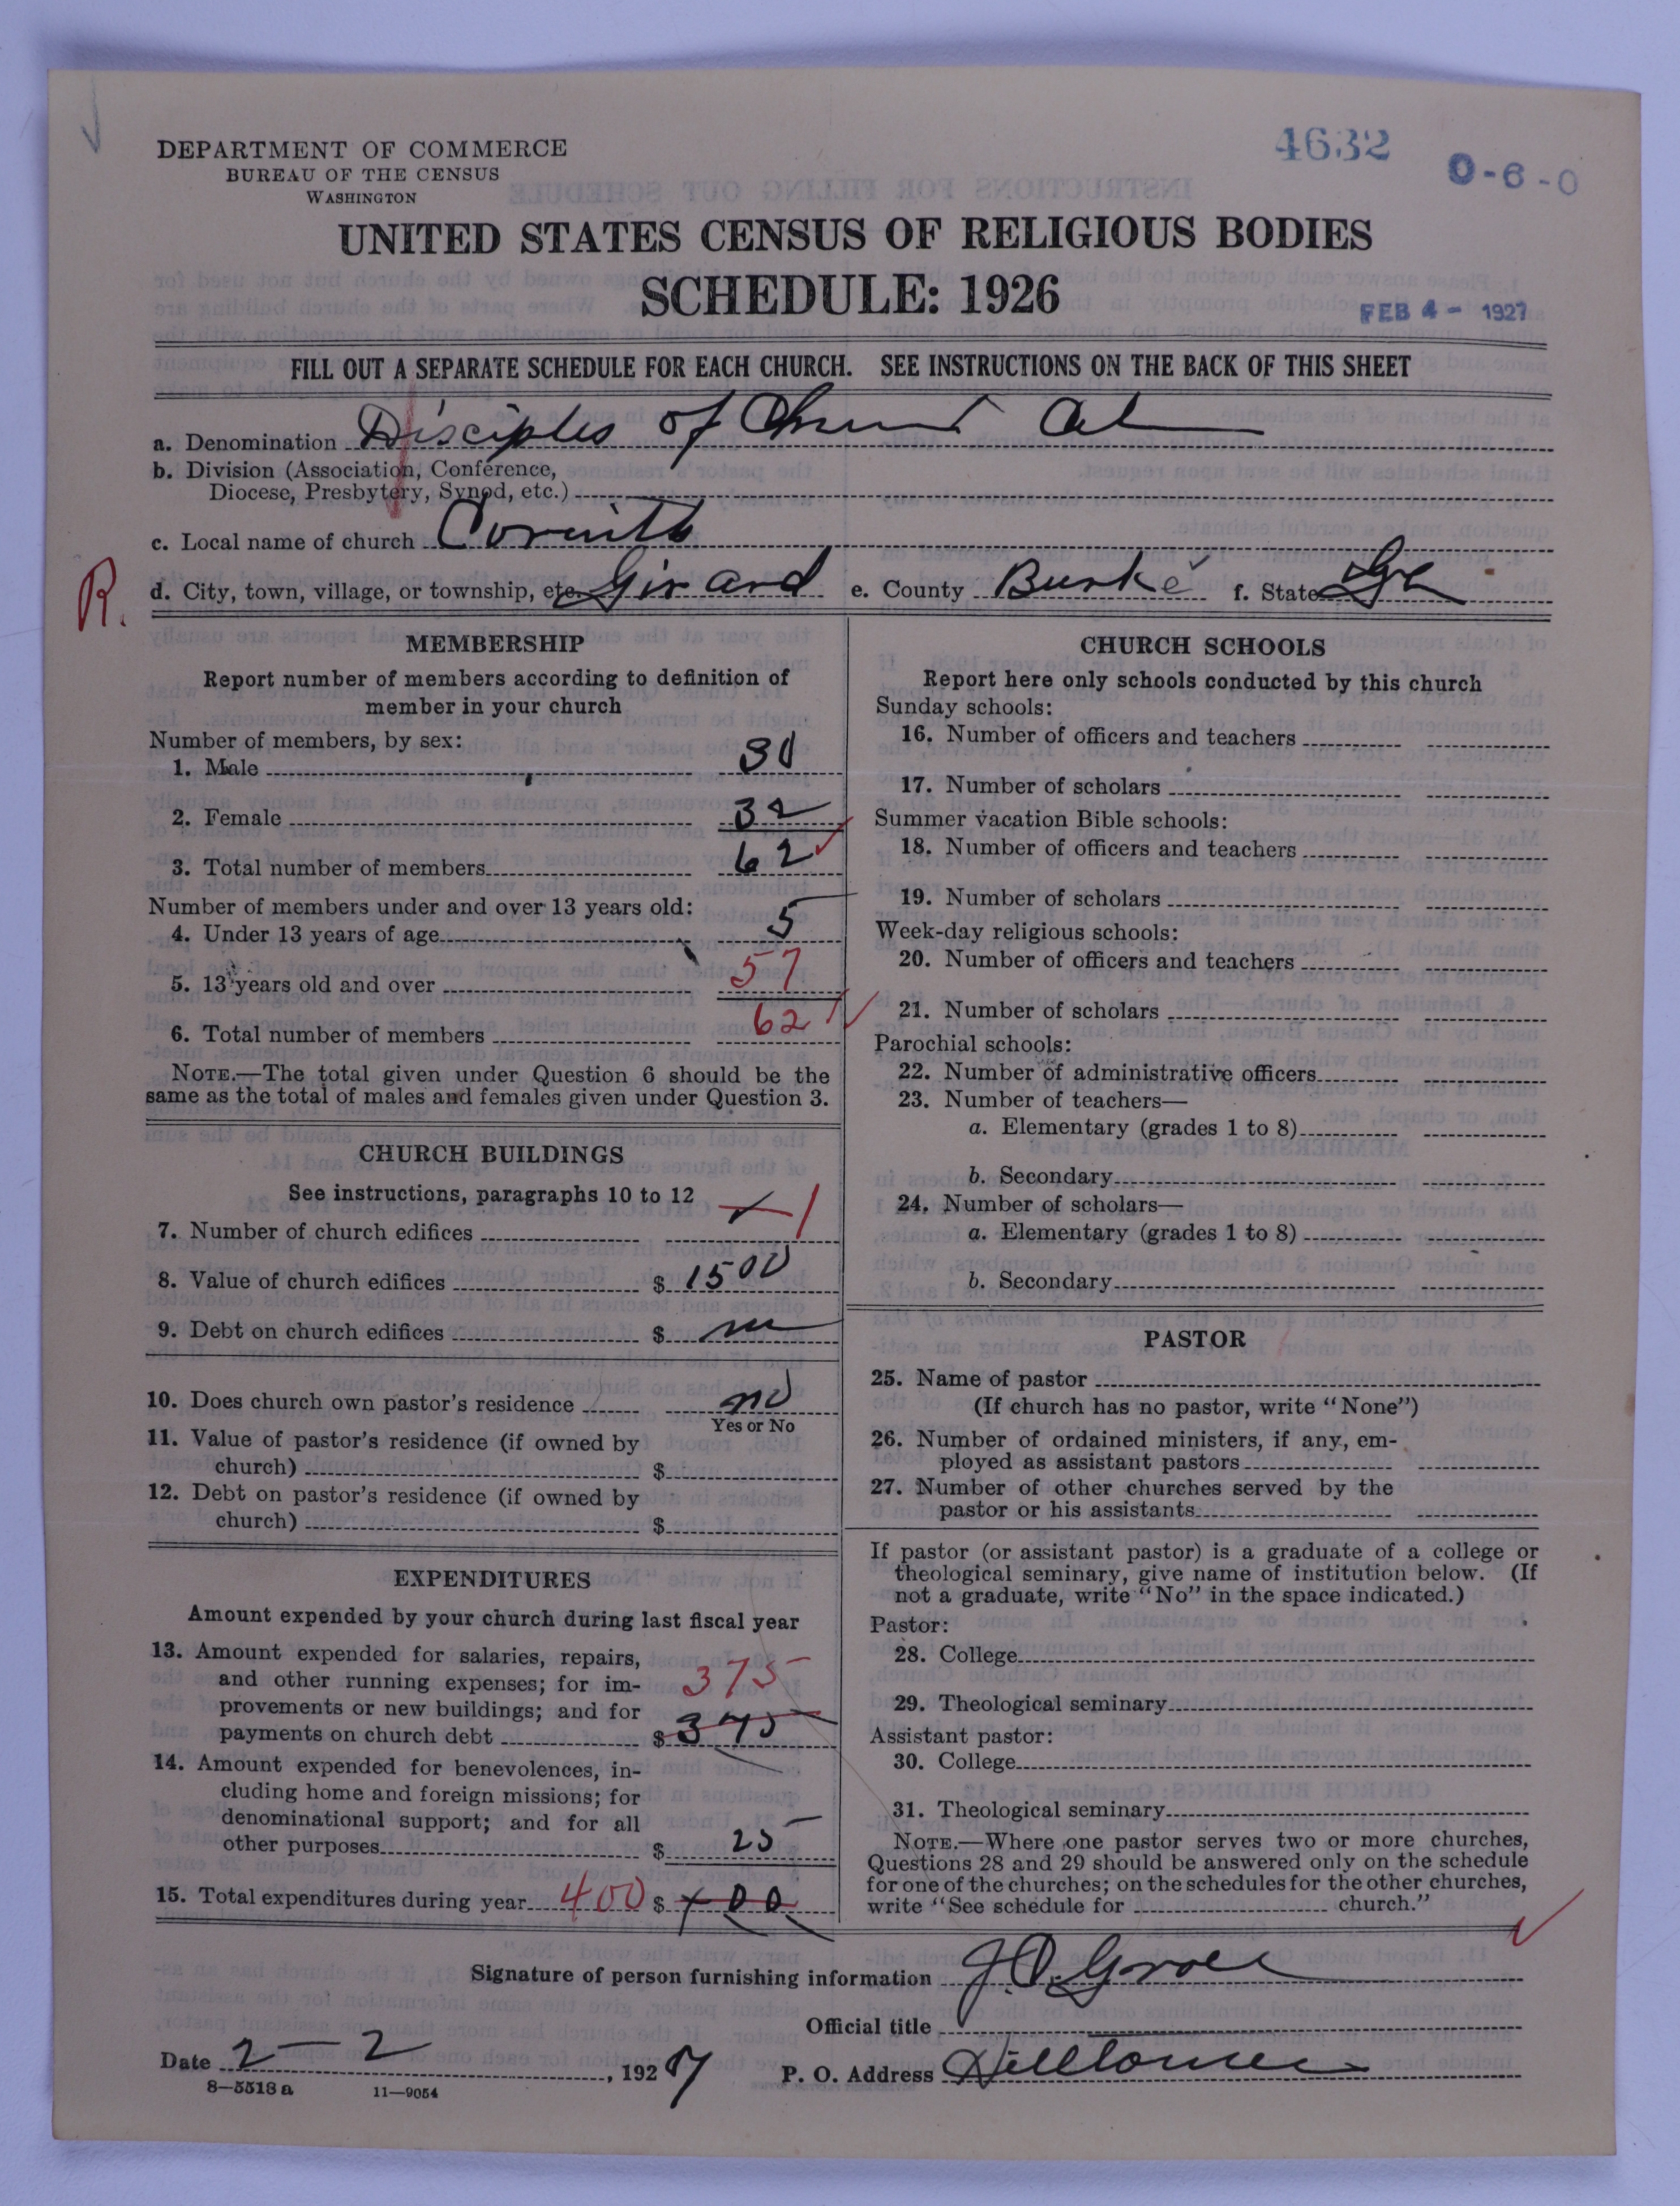 4632
0-6-0
DEPARTMENT OF COMMERCE
BUREAU OF THE CENSUS
WASHINGTON
UNITED STATES CENSUS OF RELIGIOUS BODIES
SCHEDULE: 1926
FEB 4 - 1927
FILL OUT A SEPARATE SCHEDULE FOR EACH CHURCH. SEE INSTRUCTIONS ON THE BACK OF THIS SHEET
a. Denomination Disciples of Christ
b. Division (Association, Conference,
Diocese, Presbytery, Synod, etc.)
c. Local name of church Corinth
R.
d. City, town, village, or township, etc. Girard e. County Burke f. State Ga
MEMBERSHIP
Report number of members according to definition of
member in your church
Number of members, by sex:
1. Male 30
2. Female 32
3. Total number of members 62
Number of members under and over 13 years old:
4. Under 13 years of age 5
5. 13 years old and over 57
6. Total number of members 62
NOTE.—The total given under Question 6 should be the
same as the total of males and females given under Question 3.
CHURCH BUILDINGS
See instructions, paragraphs 10 to 12
7. Number of church edifices 1
8. Value of church edifices $ 1500
9. Debt on church edifices $
10. Does church own pastor's residence no
Yes or No
11. Value of pastor's residence (if owned by
church) $
12. Debt on pastor's residence (if owned by
church) $
EXPENDITURES
Amount expended by your church during last fiscal year
13. Amount expended for salaries, repairs,
and other running expenses; for im- 375
provements or new buildings; and for
payments on church debt $ 375
14. Amount expended for benevolences, in-
cluding home and foreign missions; for
denominational support; and for all
other purposes $ 25
15. Total expenditures during year 400 $ 400
CHURCH SCHOOLS
Report here only schools conducted by this church
Sunday schools:
16. Number of officers and teachers
17. Number of scholars
Summer vacation Bible schools:
18. Number of officers and teachers
19. Number of scholars
Week-day religious schools:
20. Number of officers and teachers
21. Number of scholars
Parochial schools:
22. Number of administrative officers
23. Number of teachers—
a. Elementary (grades 1 to 8)
b. Secondary
24. Number of scholars—
a. Elementary (grades 1 to 8)
b. Secondary
PASTOR
25. Name of pastor
(If church has no pastor, write "None")
26. Number of ordained ministers, if any, em-
ployed as assistant pastors
27. Number of other churches served by the
pastor or his assistants
If pastor (or assistant pastor) is a graduate of a college or
theological seminary, give name of institution below. (If
not a graduate, write "No" in the space indicated.)
Pastor:
28. College
29. Theological seminary
Assistant pastor:
30. College
31. Theological seminary
NOTE.—Where one pastor serves two or more churches,
Questions 28 and 29 should be answered only on the schedule
for one of the churches; on the schedules for the other churches,
write "See schedule for church."
Signature of person furnishing information J.O.
Official title
Date 2 - 2, 1927 P. O. Address
8—5518 a 11—9054